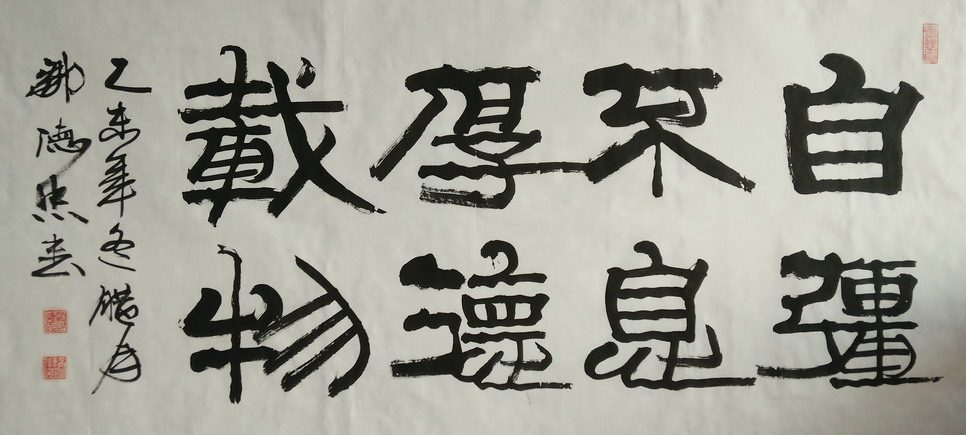 自彊
不息
厚德
載物
乙未年冬腊月
德忠书